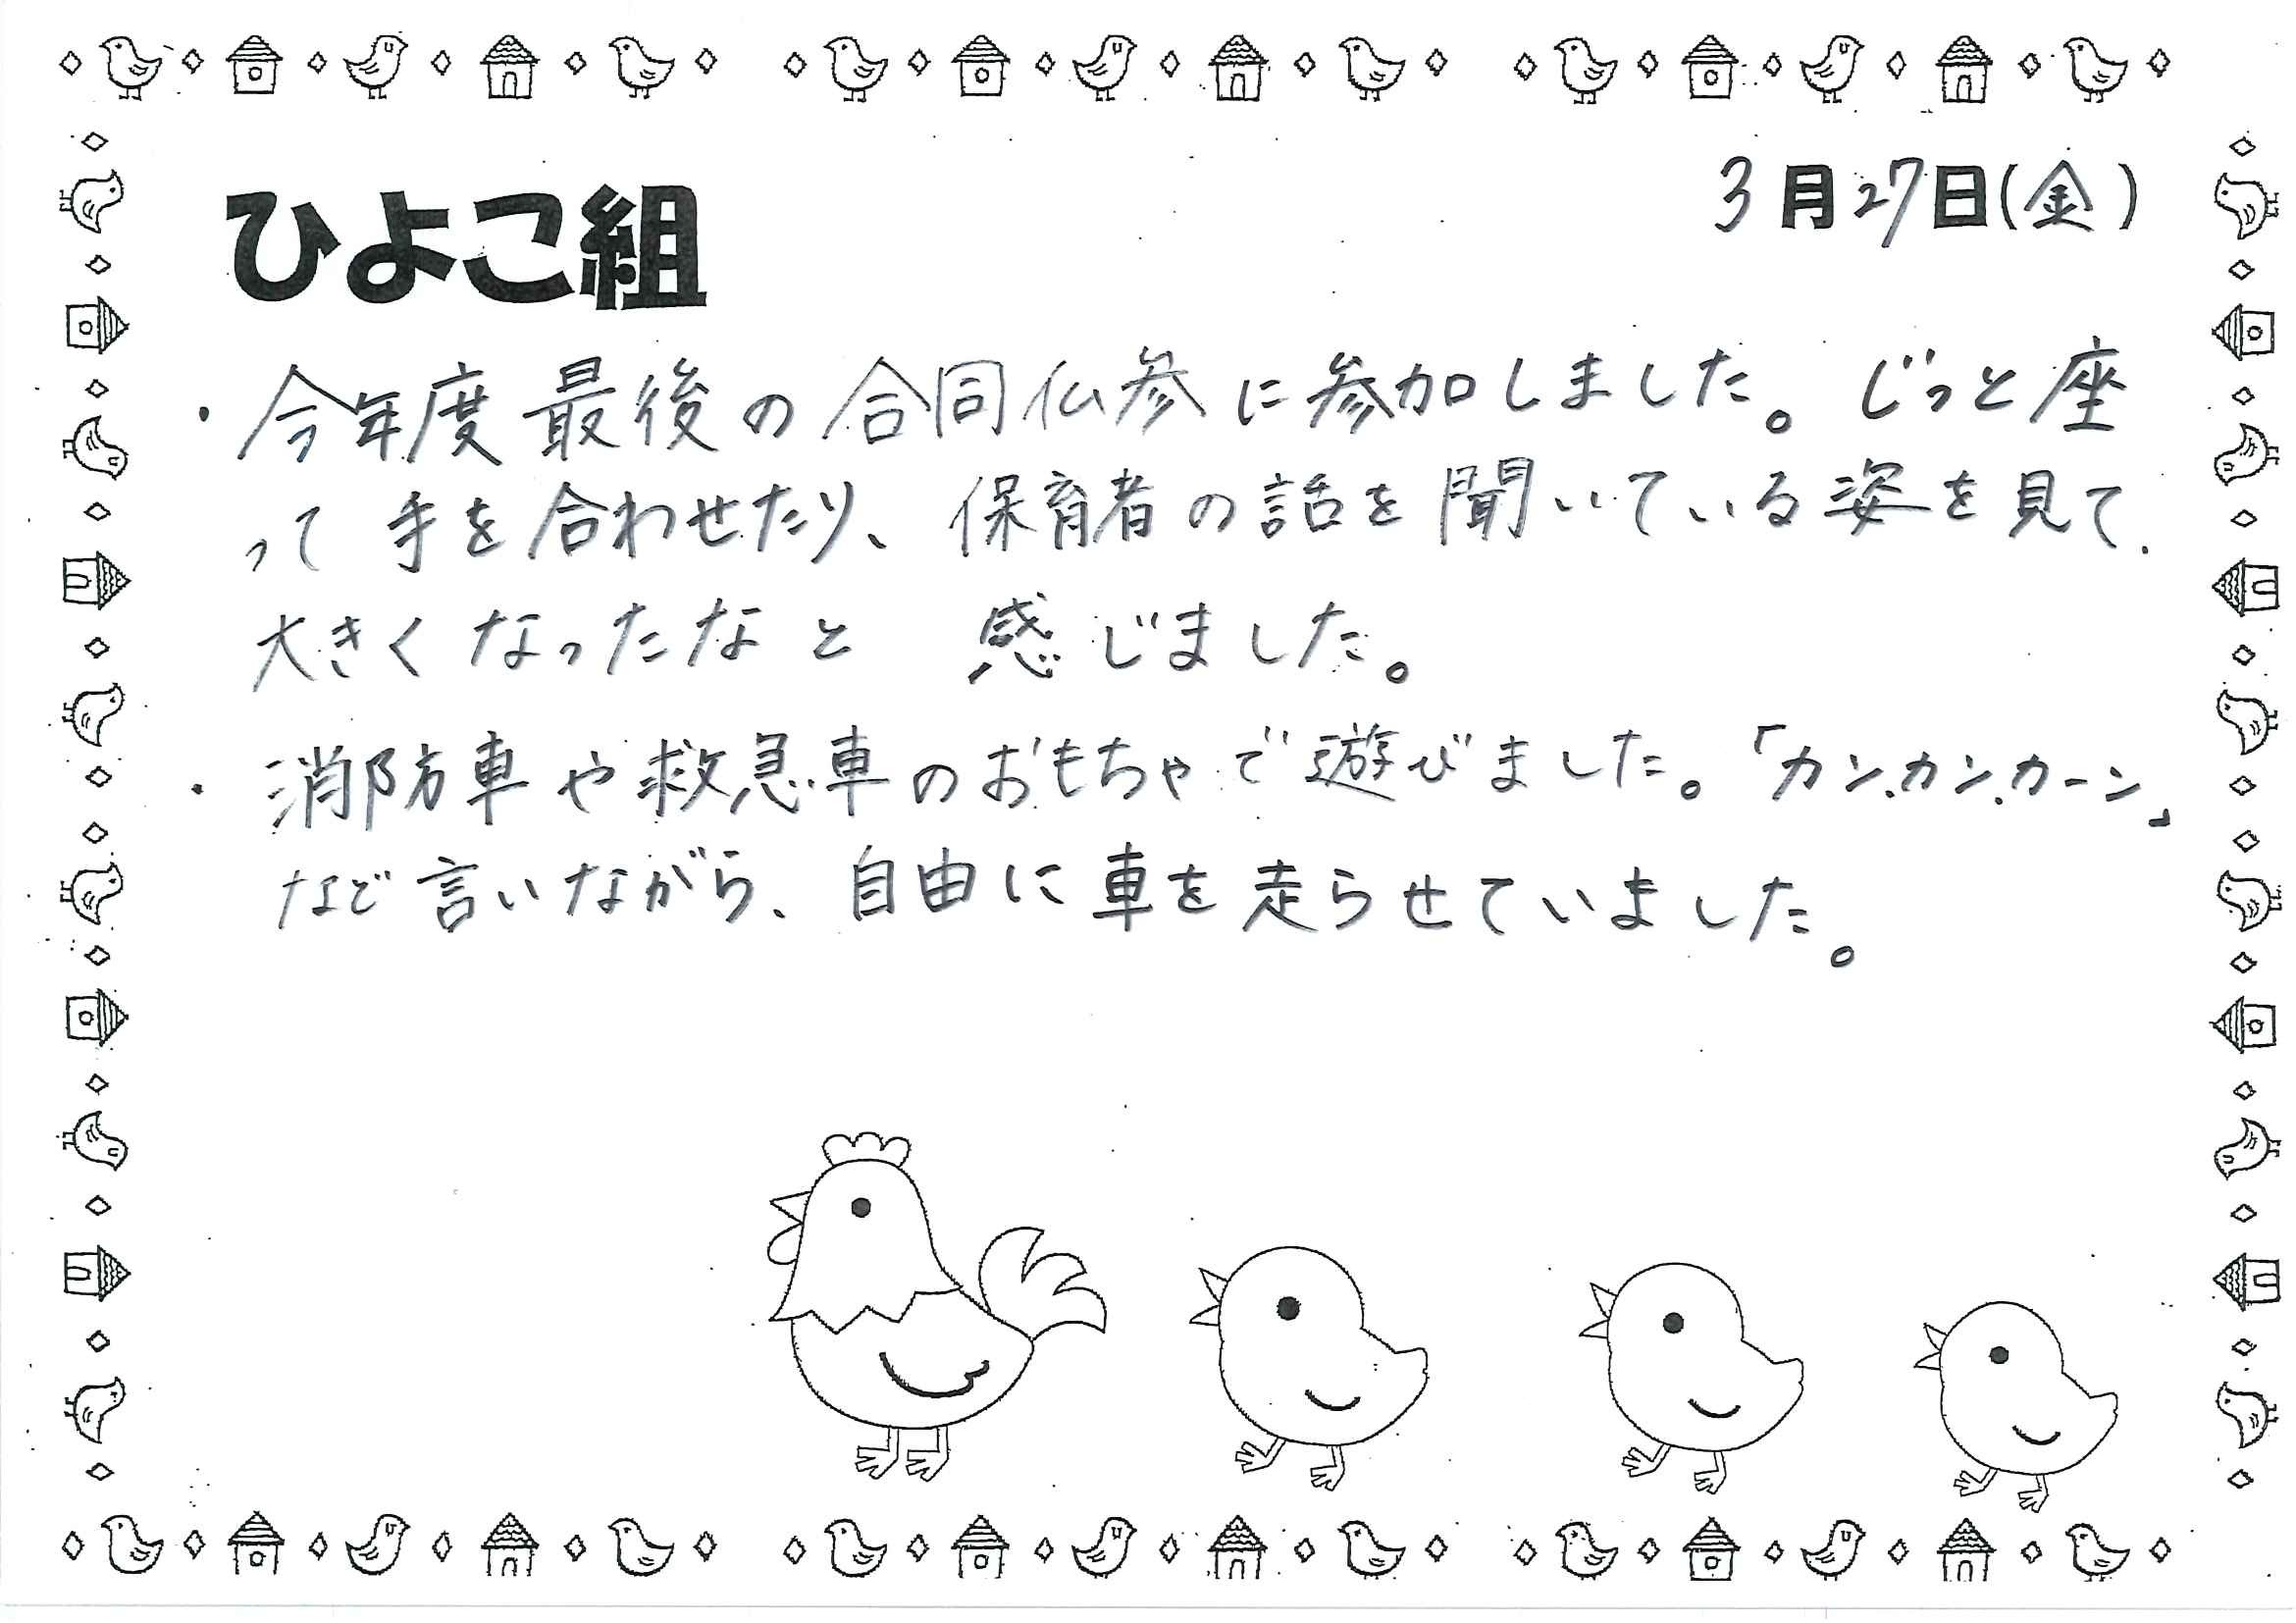 3月27日(金)
ひよこ組
・今年度最後の合同仏参に参加しました。じっと座
って手を合わせたり、保育者の話を聞いている姿を見て、
大きくなったなと 感じました。
・消防車や救急車のおもちゃで遊びました。「カン、カン、カーン」
など言いながら、自由に車を走らせていました。